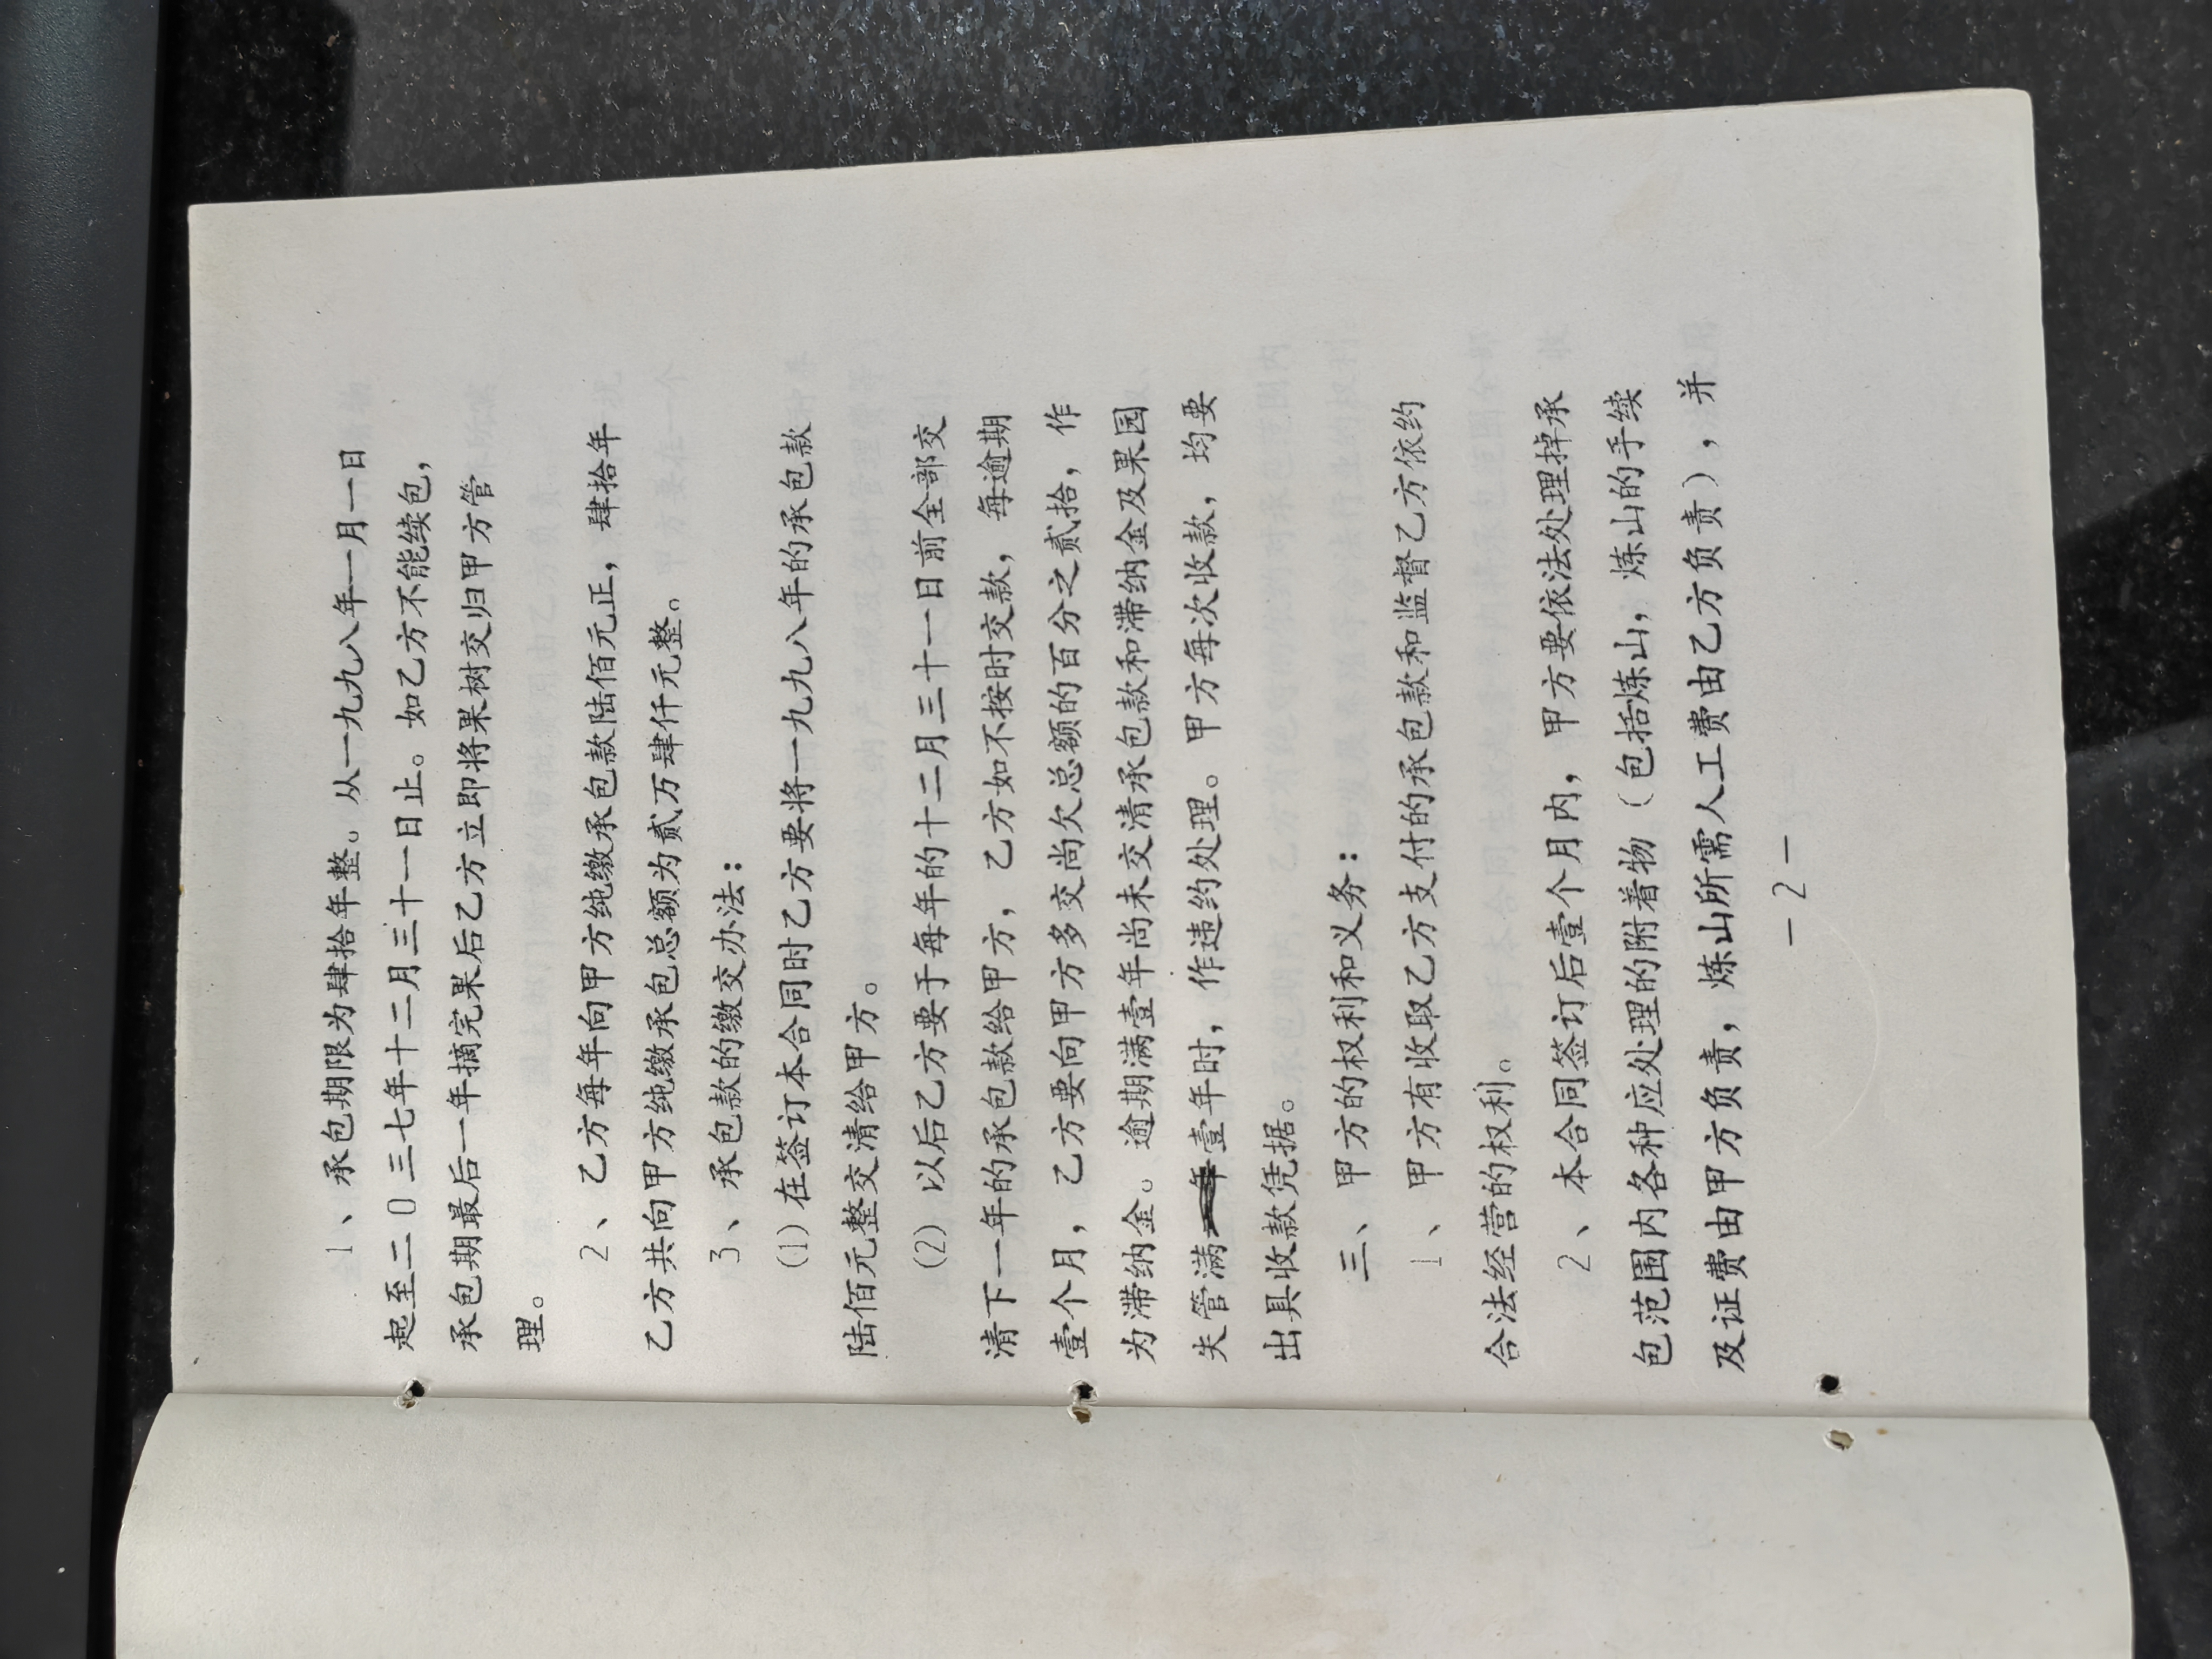 1、承包期限为肆拾年整。从一九九八年一月一日
起至二0三七年十二月三十一日止。如乙方不能续包，
承包期最后一年摘完果后乙方立即将果树交归甲方管
理。
2、乙方每年向甲方纯缴承包款陆佰元正，肆拾年
乙方共向甲方纯缴承包总额为贰万肆仟元整。
3、承包款的缴交办法：
(1)在签订本合同时乙方要将一九九八年的承包款
陆佰元整交清给甲方。
(2)以后乙方要于每年的十二月三十一日前全部交
清下一年的承包款给甲方，乙方如不按时交款，每逾期
壹个月，乙方要向甲方多交尚欠总额的百分之贰拾，作
为滞纳金。逾期满壹年尚未交清承包款和滞纳金及果园
失管满壹年时，作违约处理。甲方每次收款，均要
出具收款凭据。
三、甲方的权利和义务：
1、甲方有收取乙方支付的承包款和监督乙方依约
合法经营的权利。
2、本合同签订后壹个月内，甲方要依法处理掉承
包范围内各种应处理的附着物（包括炼山，炼山的手续
及证费由甲方负责，炼山所需人工费由乙方负责），并
－2－